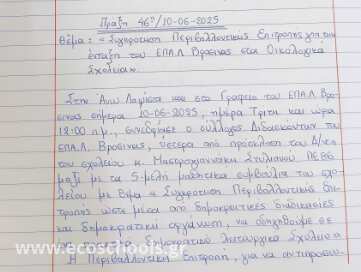 Πράξη 46η/10-06-2025
Θέμα: «Συγκρότηση Περιβαλλοντικής Επιτροπής για την
ένταξη του ΕΠΑ.Λ Βροσίνας στα Οικολογικά
Σχολεία».
Στην Άνω και στο Γραφείο του ΕΠΑ.Λ Βρο-
σίνας σήμερα 10-06-2025, ημέρα Τρίτη και ώρα
12:00 π.μ., συνεδρίασε ο σύλλογος Διδασκόντων του
ΕΠΑ.Λ. Βροσίνας, ύστερα από πρόσκληση του Δ/ντή
του σχολείου κ. Στυλιανού ΠΕ86
μαζί με τα 5-μελή μαθητικά συμβούλια του σχο-
λείου με θέμα «Συγκρότηση Περιβαλλοντικής Επι-
τροπής ώστε μέσα από δημοκρατικές διαδικασίες
και δημοκρατική οργάνωση, να οδηγηθούμε σε
δημοκρατικό λειτουργικό Σχολείο»
Η Περιβαλλοντική Επιτροπή, για να αντιπροσω-
www.ecoschools.gr